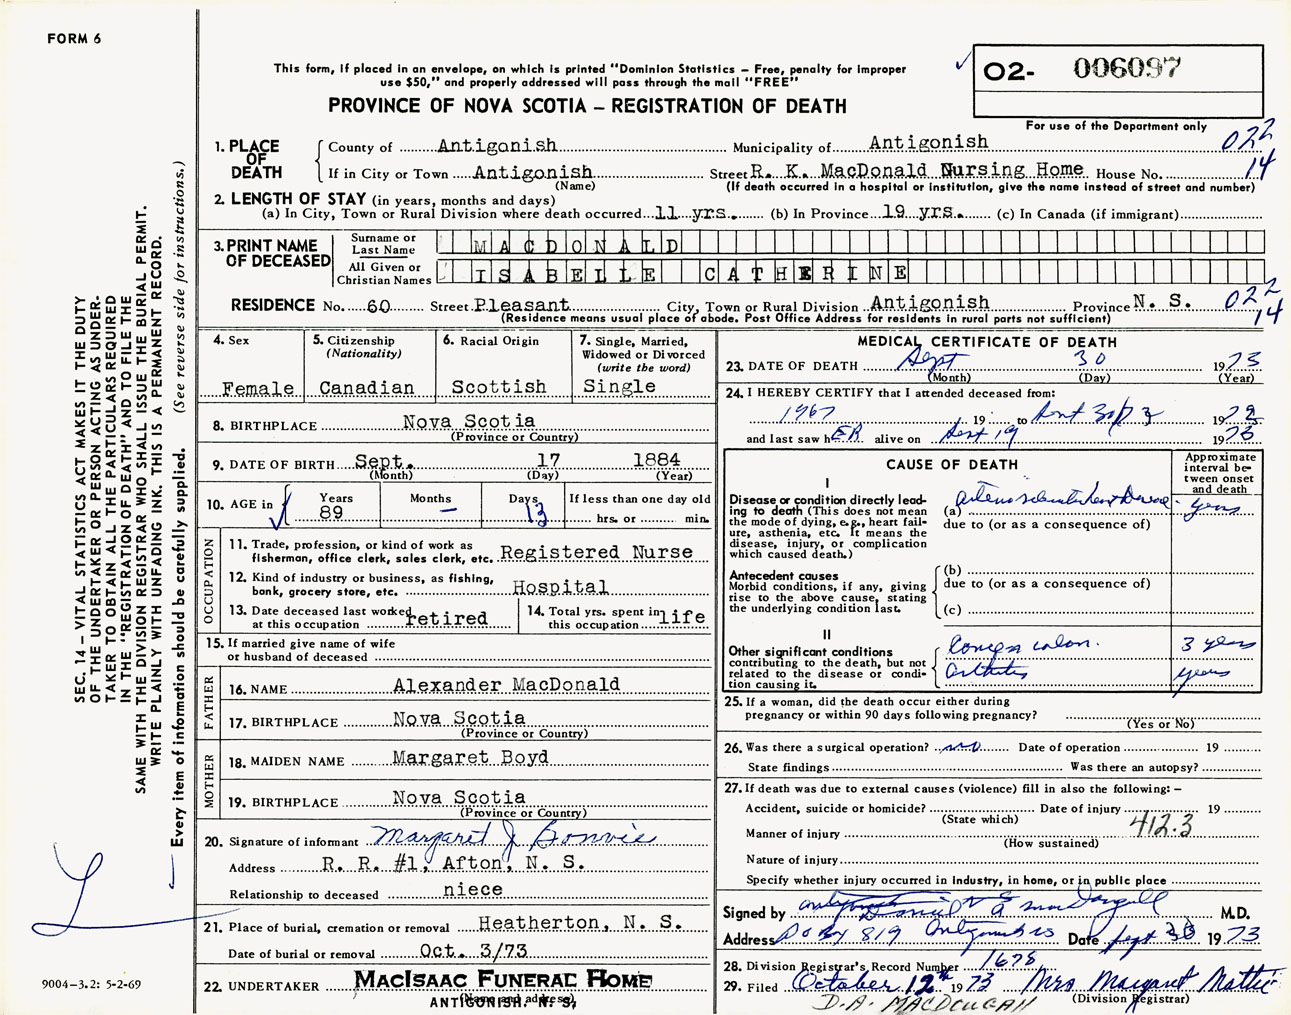 FORM 6
SEC. 14 – VITAL STATISTICS ACT MAKES IT THE DUTY
OF THE UNDERTAKER OR PERSON ACTING AS UNDER-
TAKER TO OBTAIN ALL THE PARTICULARS REQUIRED
IN THE "REGISTRATION OF DEATH" AND TO FILE THE
SAME WITH THE DIVISION REGISTRAR WHO SHALL ISSUE THE BURIAL PERMIT.
WRITE PLAINLY WITH UNFADING INK. THIS IS A PERMANENT RECORD.
Every item of information should be carefully supplied. (See reverse side for instructions.)
9004-3.2: 5-2-69
This form, if placed in an envelope, on which is printed "Dominion Statistics – Free, penalty for improper
use $50," and properly addressed will pass through the mail "FREE"
PROVINCE OF NOVA SCOTIA – REGISTRATION OF DEATH
02- 006097
For use of the Department only
1. PLACE OF DEATH
County of Antigonish Municipality of Antigonish 022
If in City or Town Antigonish Street R. K. MacDonald Nursing Home House No. 14
(Name) (If death occurred in a hospital or institution, give the name instead of street and number)
2. LENGTH OF STAY (in years, months and days)
(a) In City, Town or Rural Division where death occurred 11 yrs. (b) In Province 19 yrs. (c) In Canada (if immigrant)
3. PRINT NAME OF DECEASED
Surname or Last Name MACDONALD
All Given or Christian Names ISABELLE CATHERINE
RESIDENCE No. 60 Street Pleasant City, Town or Rural Division Antigonish Province N. S. 022
(Residence means usual place of abode. Post Office Address for residents in rural parts not sufficient) 14
4. Sex Female
5. Citizenship (Nationality) Canadian
6. Racial Origin Scottish
7. Single, Married, Widowed or Divorced (write the word) Single
8. BIRTHPLACE Nova Scotia
(Province or Country)
9. DATE OF BIRTH Sept. 17 1884
(Month) (Day) (Year)
10. AGE in Years 89 Months – Days 13 If less than one day old
hrs. or min.
OCCUPATION
11. Trade, profession, or kind of work as
fisherman, office clerk, sales clerk, etc. Registered Nurse
12. Kind of industry or business, as fishing,
bank, grocery store, etc. Hospital
13. Date deceased last worked
at this occupation retired
14. Total yrs. spent in
this occupation life
15. If married give name of wife
or husband of deceased
FATHER
16. NAME Alexander MacDonald
17. BIRTHPLACE Nova Scotia
(Province or Country)
MOTHER
18. MAIDEN NAME Margaret Boyd
19. BIRTHPLACE Nova Scotia
(Province or Country)
20. Signature of informant Margaret J Bonvie
Address R. R. #1, Afton, N. S.
Relationship to deceased niece
21. Place of burial, cremation or removal Heatherton, N. S.
Date of burial or removal Oct. 3/73
22. UNDERTAKER MACISAAC FUNERAL HOME
(Name and address)
ANTIGONISH, N. S.
MEDICAL CERTIFICATE OF DEATH
23. DATE OF DEATH Sept 30 1973
(Month) (Day) (Year)
24. I HEREBY CERTIFY that I attended deceased from:
1967 19 to Sept 30/73 19
and last saw hER alive on Sept 19 1973
CAUSE OF DEATH
Approximate
interval be-
tween onset
and death
I
Disease or condition directly lead-
ing to death (This does not mean
the mode of dying, e.g., heart fail-
ure, asthenia, etc. It means the
disease, injury, or complication
which caused death.)
(a) arteriosclerotic heart disease. years
due to (or as a consequence of)
Antecedent causes
Morbid conditions, if any, giving
rise to the above cause, stating
the underlying condition last.
(b)
due to (or as a consequence of)
(c)
II
Other significant conditions
contributing to the death, but not
related to the disease or condi-
tion causing it.
colon. 3 years
arthritis years
25. If a woman, did the death occur either during
pregnancy or within 90 days following pregnancy?
(Yes or No)
26. Was there a surgical operation? no Date of operation 19
State findings Was there an autopsy?
27. If death was due to external causes (violence) fill in also the following: –
Accident, suicide or homicide? Date of injury 19
(State which) 412.3
Manner of injury
(How sustained)
Nature of injury
Specify whether injury occurred in industry, in home, or in public place
Signed by MacDougall M.D.
Address PO Box 819 Antigonish NS Date Sept 30 1973
28. Division Registrar's Record Number 1678
29. Filed October 12th 1973 Mrs Margaret Mattie
(Division Registrar)
D.A. MACDOUGALL